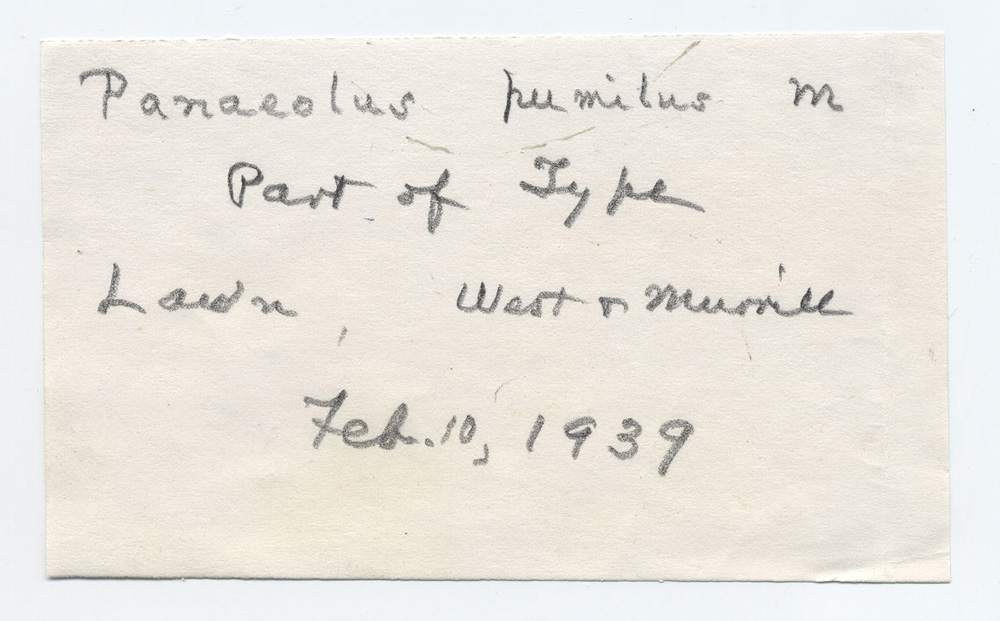 Panaeolus pumilus M
Part of Type
Lawn, West & Murrill
Feb. 10, 1939